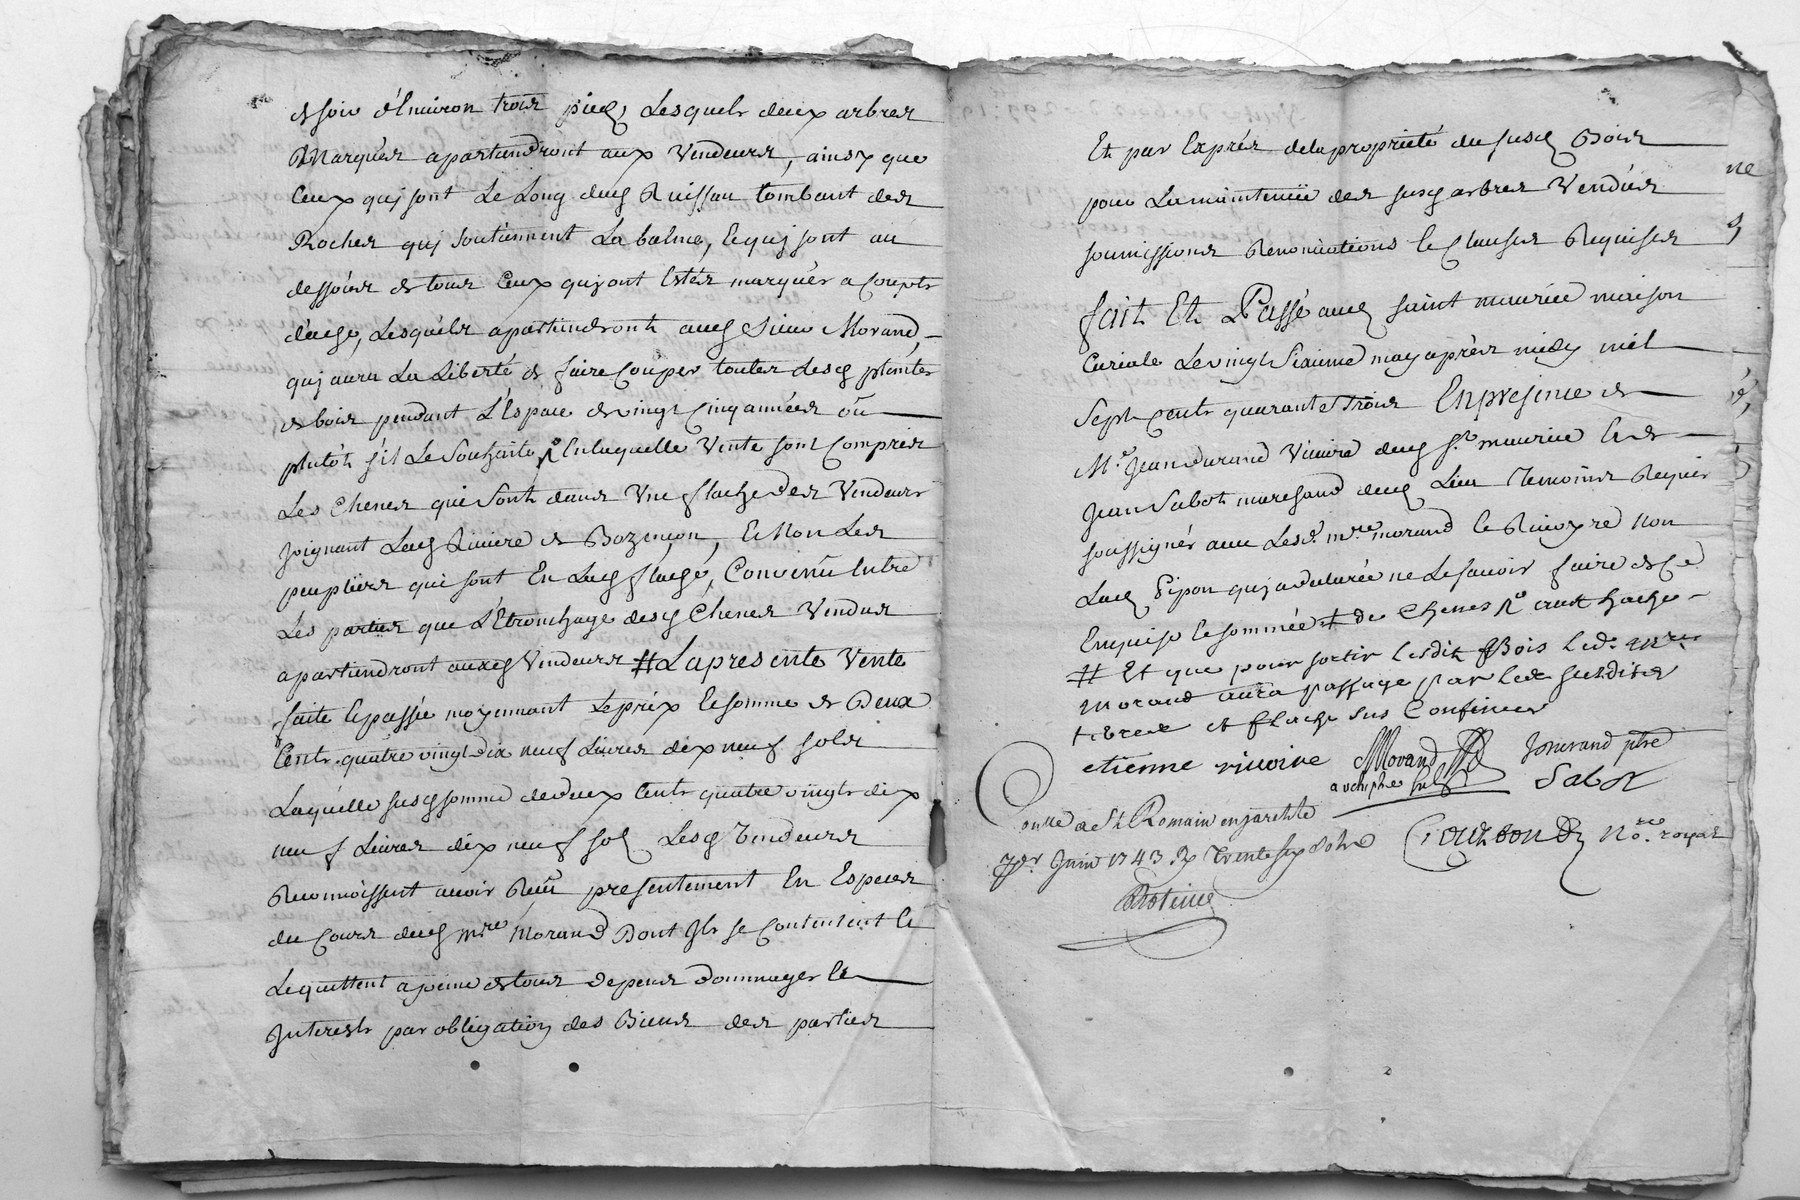 de soie d'Environ trois pieds, Lesquels deux arbres
Marqués apartiendront aux Vendeurs, ainsy que
Ceux quj sont Le Long dud Ruissau tombant des
Rocher quj soutiennent La balme, Et quj sont au
dessous de tous Ceux quj ont Estés marqués a coupts
d'ache, Lesquels apartiendront aud Sieur Morand,
quj aura La Liberté de faire Couper toutes desd plantes
de bois pendant L'Espace de vingt Cinq années ou
plutôt s'il Le Souhaite, Enlaquelle Vente sont Compris
Les Chenes qui Sont dans Une flache des Vendeurs
Joignant Lad Riviere de Bozançon, Et Non Les
peupliers qui sont En Lad flache, Convenu Entre
Les parties que L'Etronchage desd Chenes Vendus
apartiendront auxd Vendeurs # La presente Vente
faite Et passée moyennant Le prix Et somme de Deux
Cents quatre vingt dix neuf Livres dix neuf sols
Laquelle susd somme de deux Cents quatre vingts dix
neuf Livres dix neuf sol Lesd Vendeurs
Reconnoissent avoir Reçu presentement En Especes
du Cours dud mre Morand Dont Ils se Contentent Et
Le quittent a peine de tous depens dommages Et
Interests par obligation des Biens des parties
Et par Exprés de la proprieté du susd Bois
pour La maintenüe des susd arbres Vendus
soumissions Renonciations Et Clauses Requises
fait Et Passé aud saint maurice maison
Curiale Le vingt Sixieme may après midy mil
Sept Cents quarante trois En presence de
Mre Jean Durand Vicaire dud St maurice Et de
Jean Sabot marchand dud Lieu Temoins Requis
soussignés avec Led. mre morand Et Rivoyre Non
Lad Pipon quj a declarée ne Le savoir faire de Ce
Enquise Et sommée # de Chenes
# Et que pour sortir Lesdits Bois Led. mre
morand aura passage par Les susdites
terres et flache sus Confinées
etienne rivoire Morand J Durand ptre
archiptre Sabot
Conllé a St Romain en Jaretste
7er Juin 1743 Rx Trente six sols
No.re royal